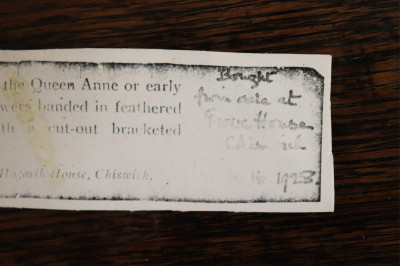 the Queen Anne or early
wers banded in feathered
th cut-out bracketed
Hogarth House, Chiswick.
Bought
from sale at
Grove House
Chiswick
1928.